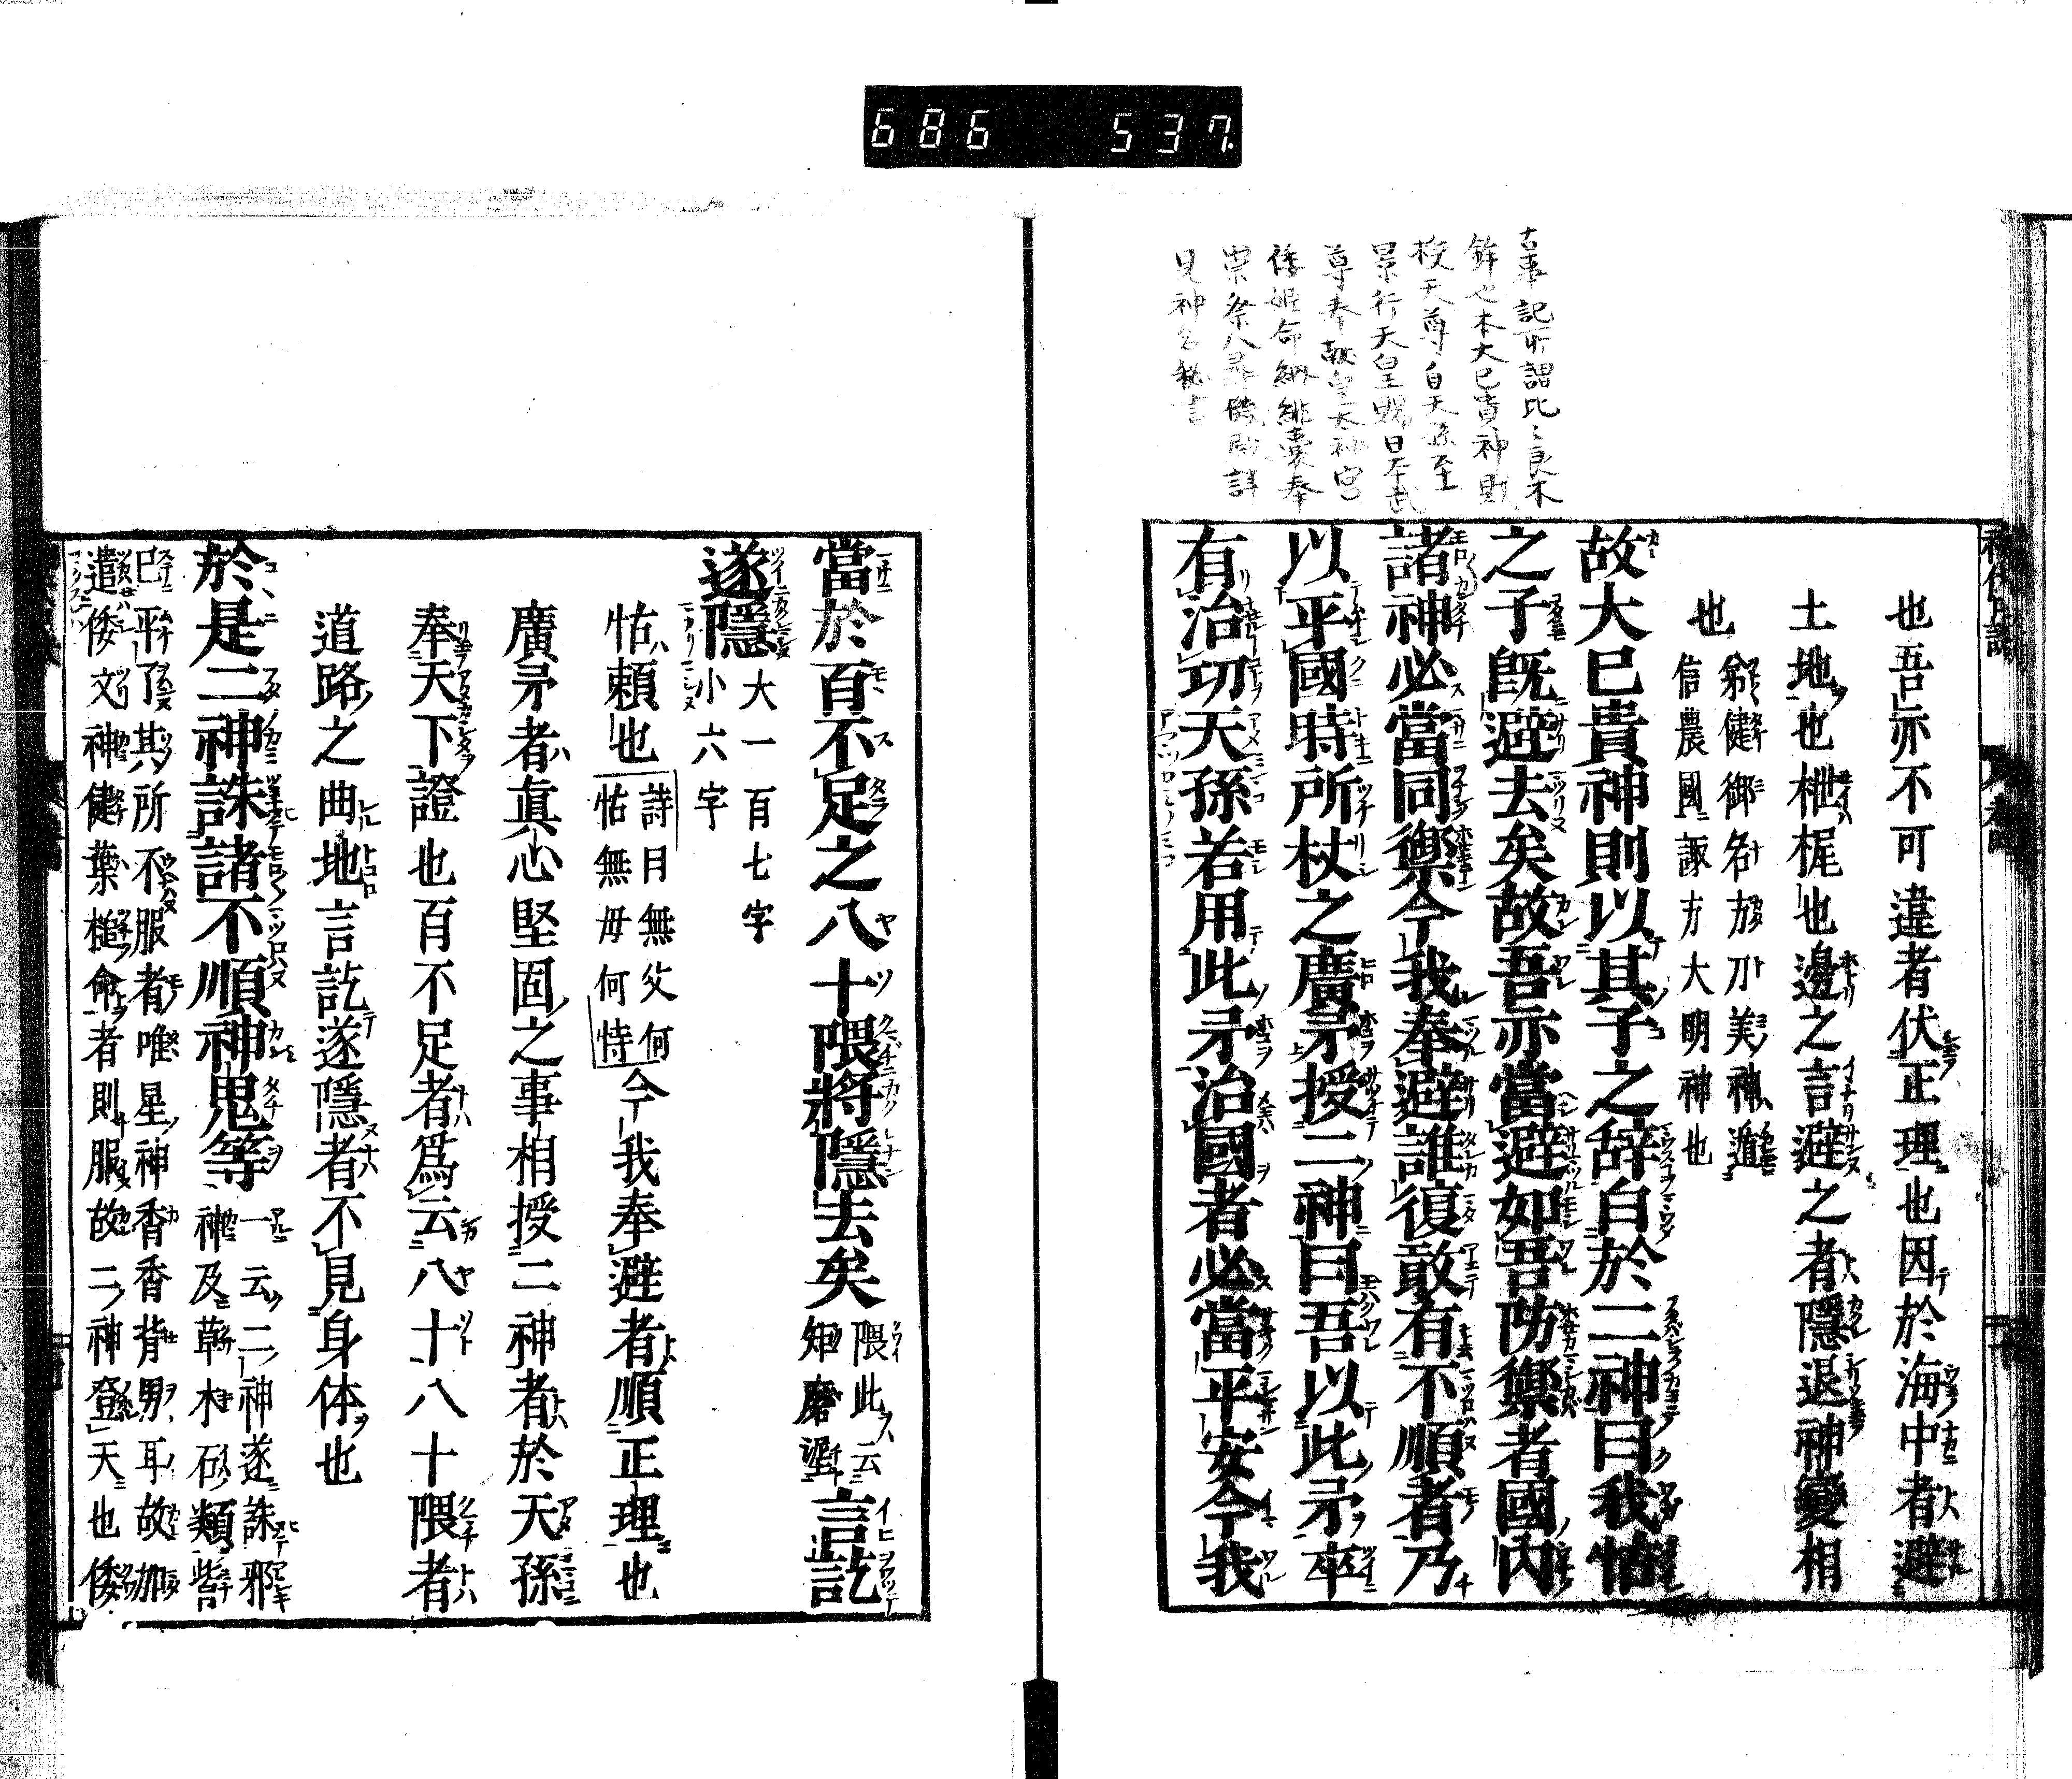 686 537
古事記所謂比々良木
鉾也本大己貴神則
授天尊自天孫至
景行天皇賜日本武
尊奉献皇大神宮
倭姫命納緋嚢奉
崇祭八尋機殿詳
見神名秘書
也吾亦不可違者伏正理也因於海中者避
土地也枻梶也邊之言避之者隱退神變相
也
窮健御名方刀美神遁
信農國諏方大明神也
故大已貴神則以其子之辞白於二神曰我怙
之子既避去矣故吾亦當避如吾防禦者國內
諸神必當同禦今我奉避誰復敢有不順者乃
以平國時所杖之廣矛授二神曰吾以此矛卒
有治功天孫若用此矛治國者必當平安今我
當於百不足之八十隈將隱去矣
隈此云
矩磨埿
言訖
遂隱
大一百七字
小六字
怙賴也
詩曰無父何
怙無毋何恃
今我奉避者順正理也
廣矛者真心堅固之事相授二神者於天孫
奉天下證也百不足者爲云八十八十隈者
道路之曲地言訖遂隱者不見身体也
於是二神誅諸不順神鬼等
一云二神遂誅邪
神及草木石類皆
已平了其所不服者唯星神香香背男耳故加
遣倭文神健葉槌命者則服故二神登天也倭